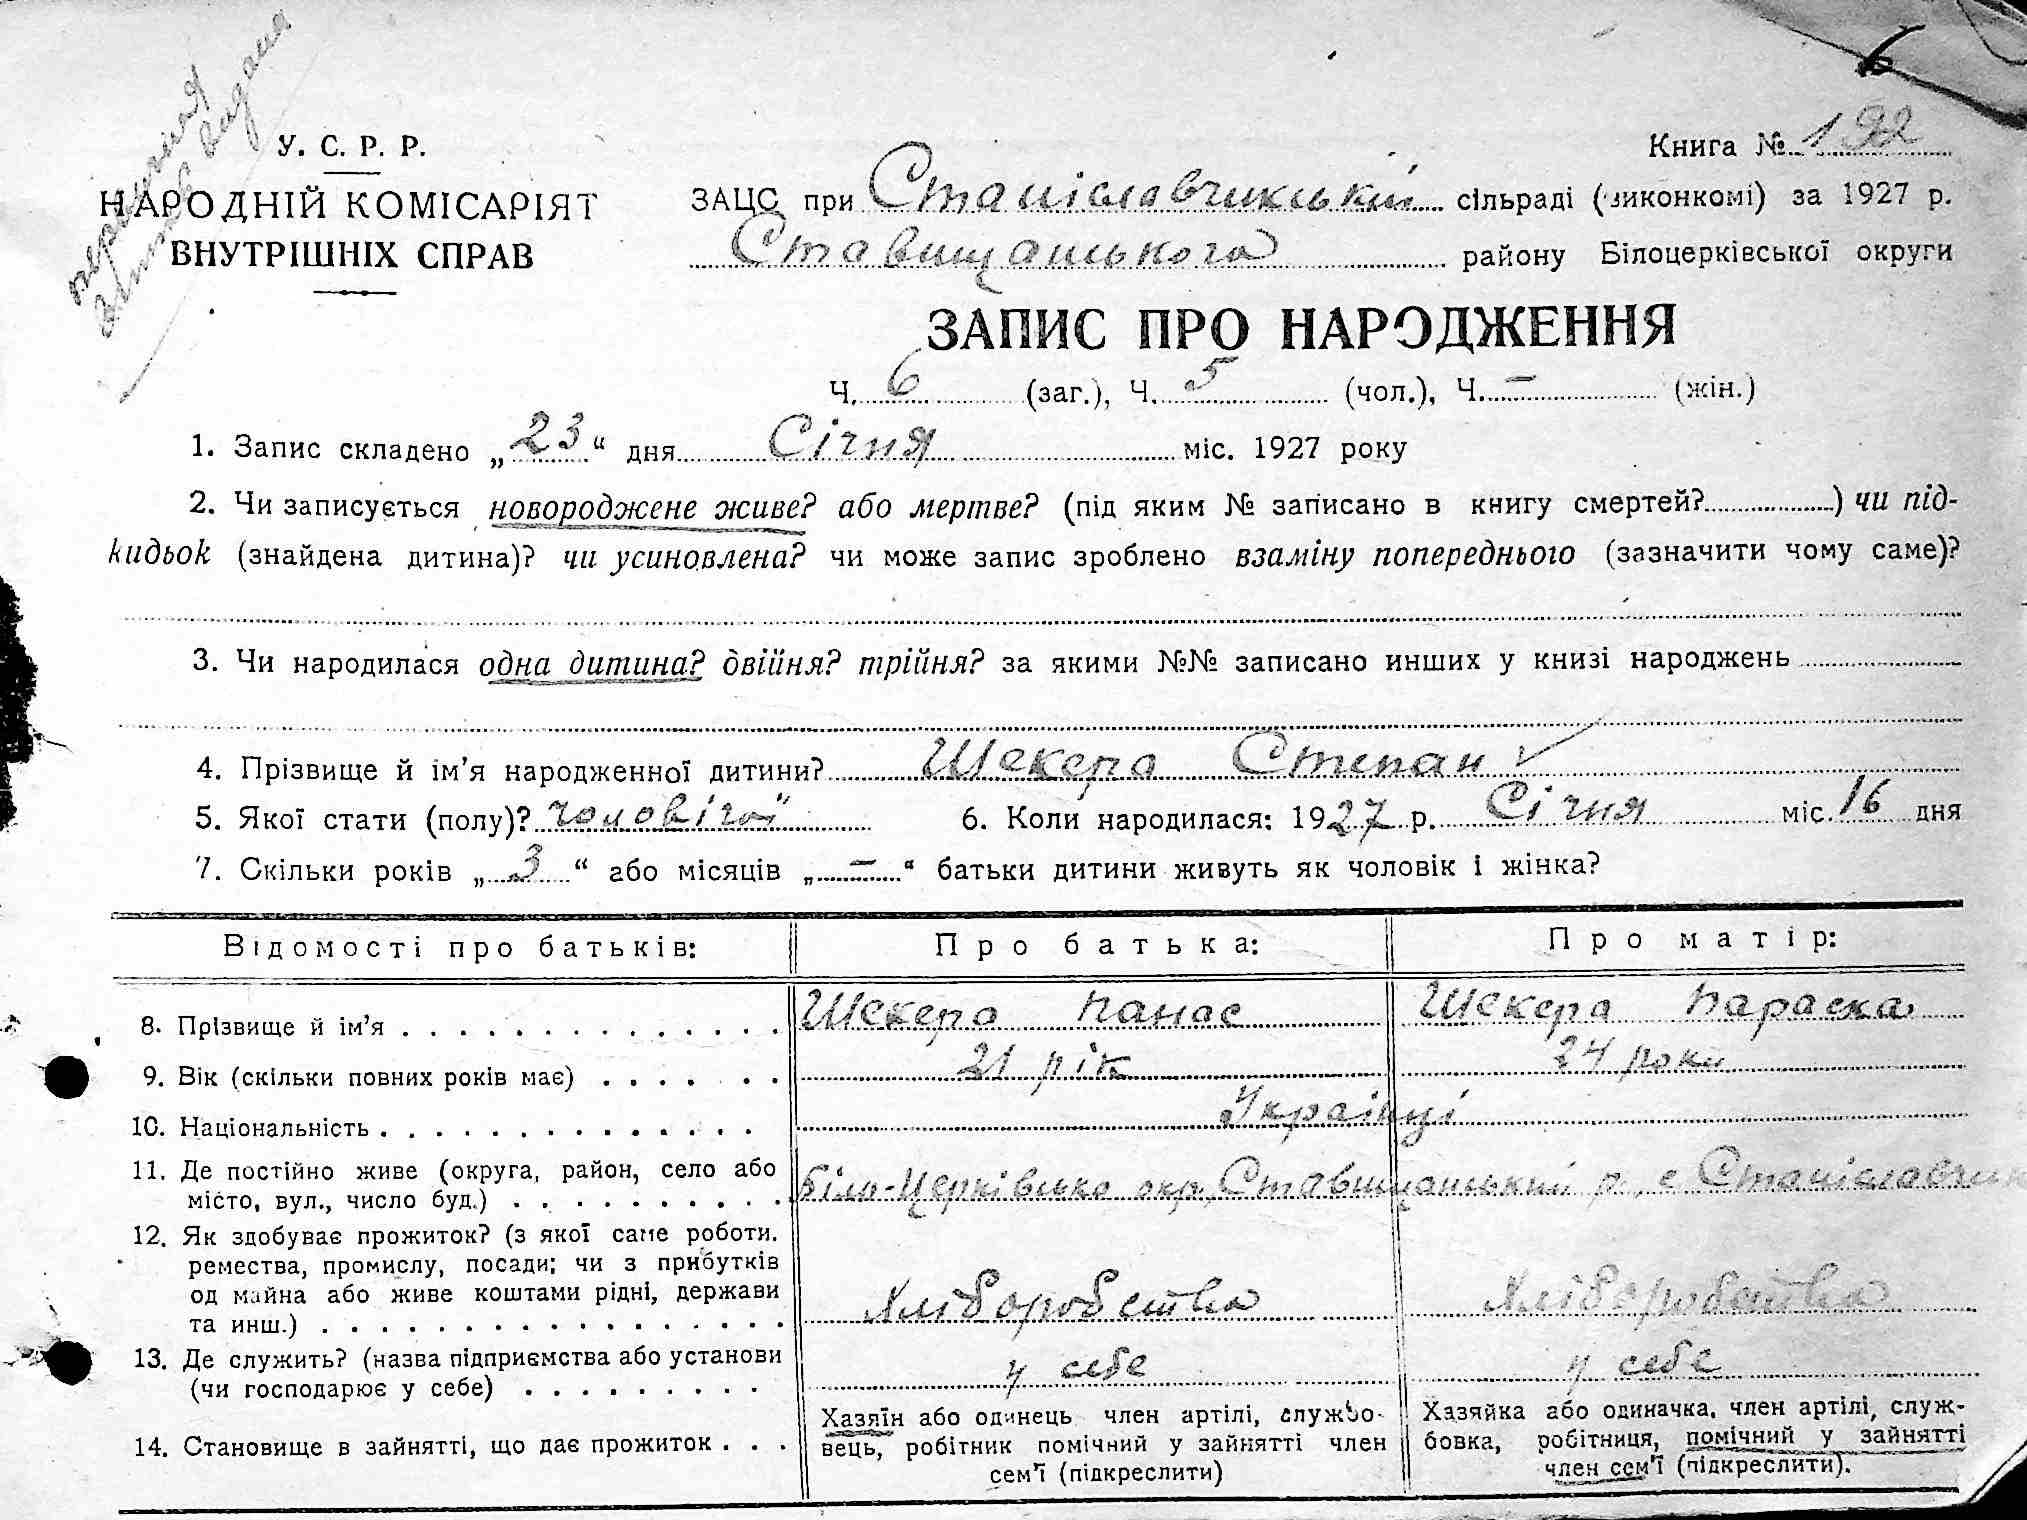 6
первична
витяг видана
У. С. Р. Р.
НАРОДНІЙ КОМІСАРІЯТ
ВНУТРІШНІХ СПРАВ
Книга № 1
ЗАЦС при Станіславчикській сільраді (виконкомі) за 1927 р.
Ставищанського району Білоцерківської округи
ЗАПИС ПРО НАРОДЖЕННЯ
Ч. 6 (заг.), Ч. 5 (чол.), Ч. – (жін.)
1. Запис складено „23“ дня Січня міс. 1927 року
2. Чи записується новороджене живе? або мертве? (під яким № записано в книгу смертей?) чи під-
кидьок (знайдена дитина)? чи усиновлена? чи може запис зроблено взаміну попереднього (зазначити чому саме)?
3. Чи народилася одна дитина? двійня? трійня? за якими №№ записано инших у книзі народжень
4. Прізвище й ім’я народженної дитини? Шекера Степан
5. Якої стати (полу)? чоловічої 6. Коли народилася: 1927 р. Січня міс. 16 дня
7. Скільки років „3“ або місяців „–“ батьки дитини живуть як чоловік і жінка?
Відомості про батьків: Про батька: Про матір:
8. Прізвище й ім’я . . . . . . . . . . . . . . Шекера Панас Шекера Параска
9. Вік (скільки повних років має) . . . . . . 21 рік 24 роки
10. Національність . . . . . . . . . . . . . . Українці
11. Де постійно живе (округа, район, село або
місто, вул., число буд.) . . . . . . . . . . Біло-Церківсько окр, Ставищанський р, с Станіславчик
12. Як здобуває прожиток? (з якої саме роботи.
ремества, промислу, посади; чи з прибутків
од майна або живе коштами рідні, держави
та инш.) . . . . . . . . . . . . . . . . . Хліборобства Хліборобства
13. Де служить? (назва підприємства або установи
(чи господарює у себе) . . . . . . . . . у себе у себе
14. Становище в зайнятті, що дає прожиток . . .
Хазяїн або одинець член артілі, службо-
вець, робітник помічний у зайнятті член
сем’ї (підкреслити)
Хазяйка або одиначка. член артілі, служ-
бовка, робітниця, помічний у зайнятті
член сем’ї (підкреслити).